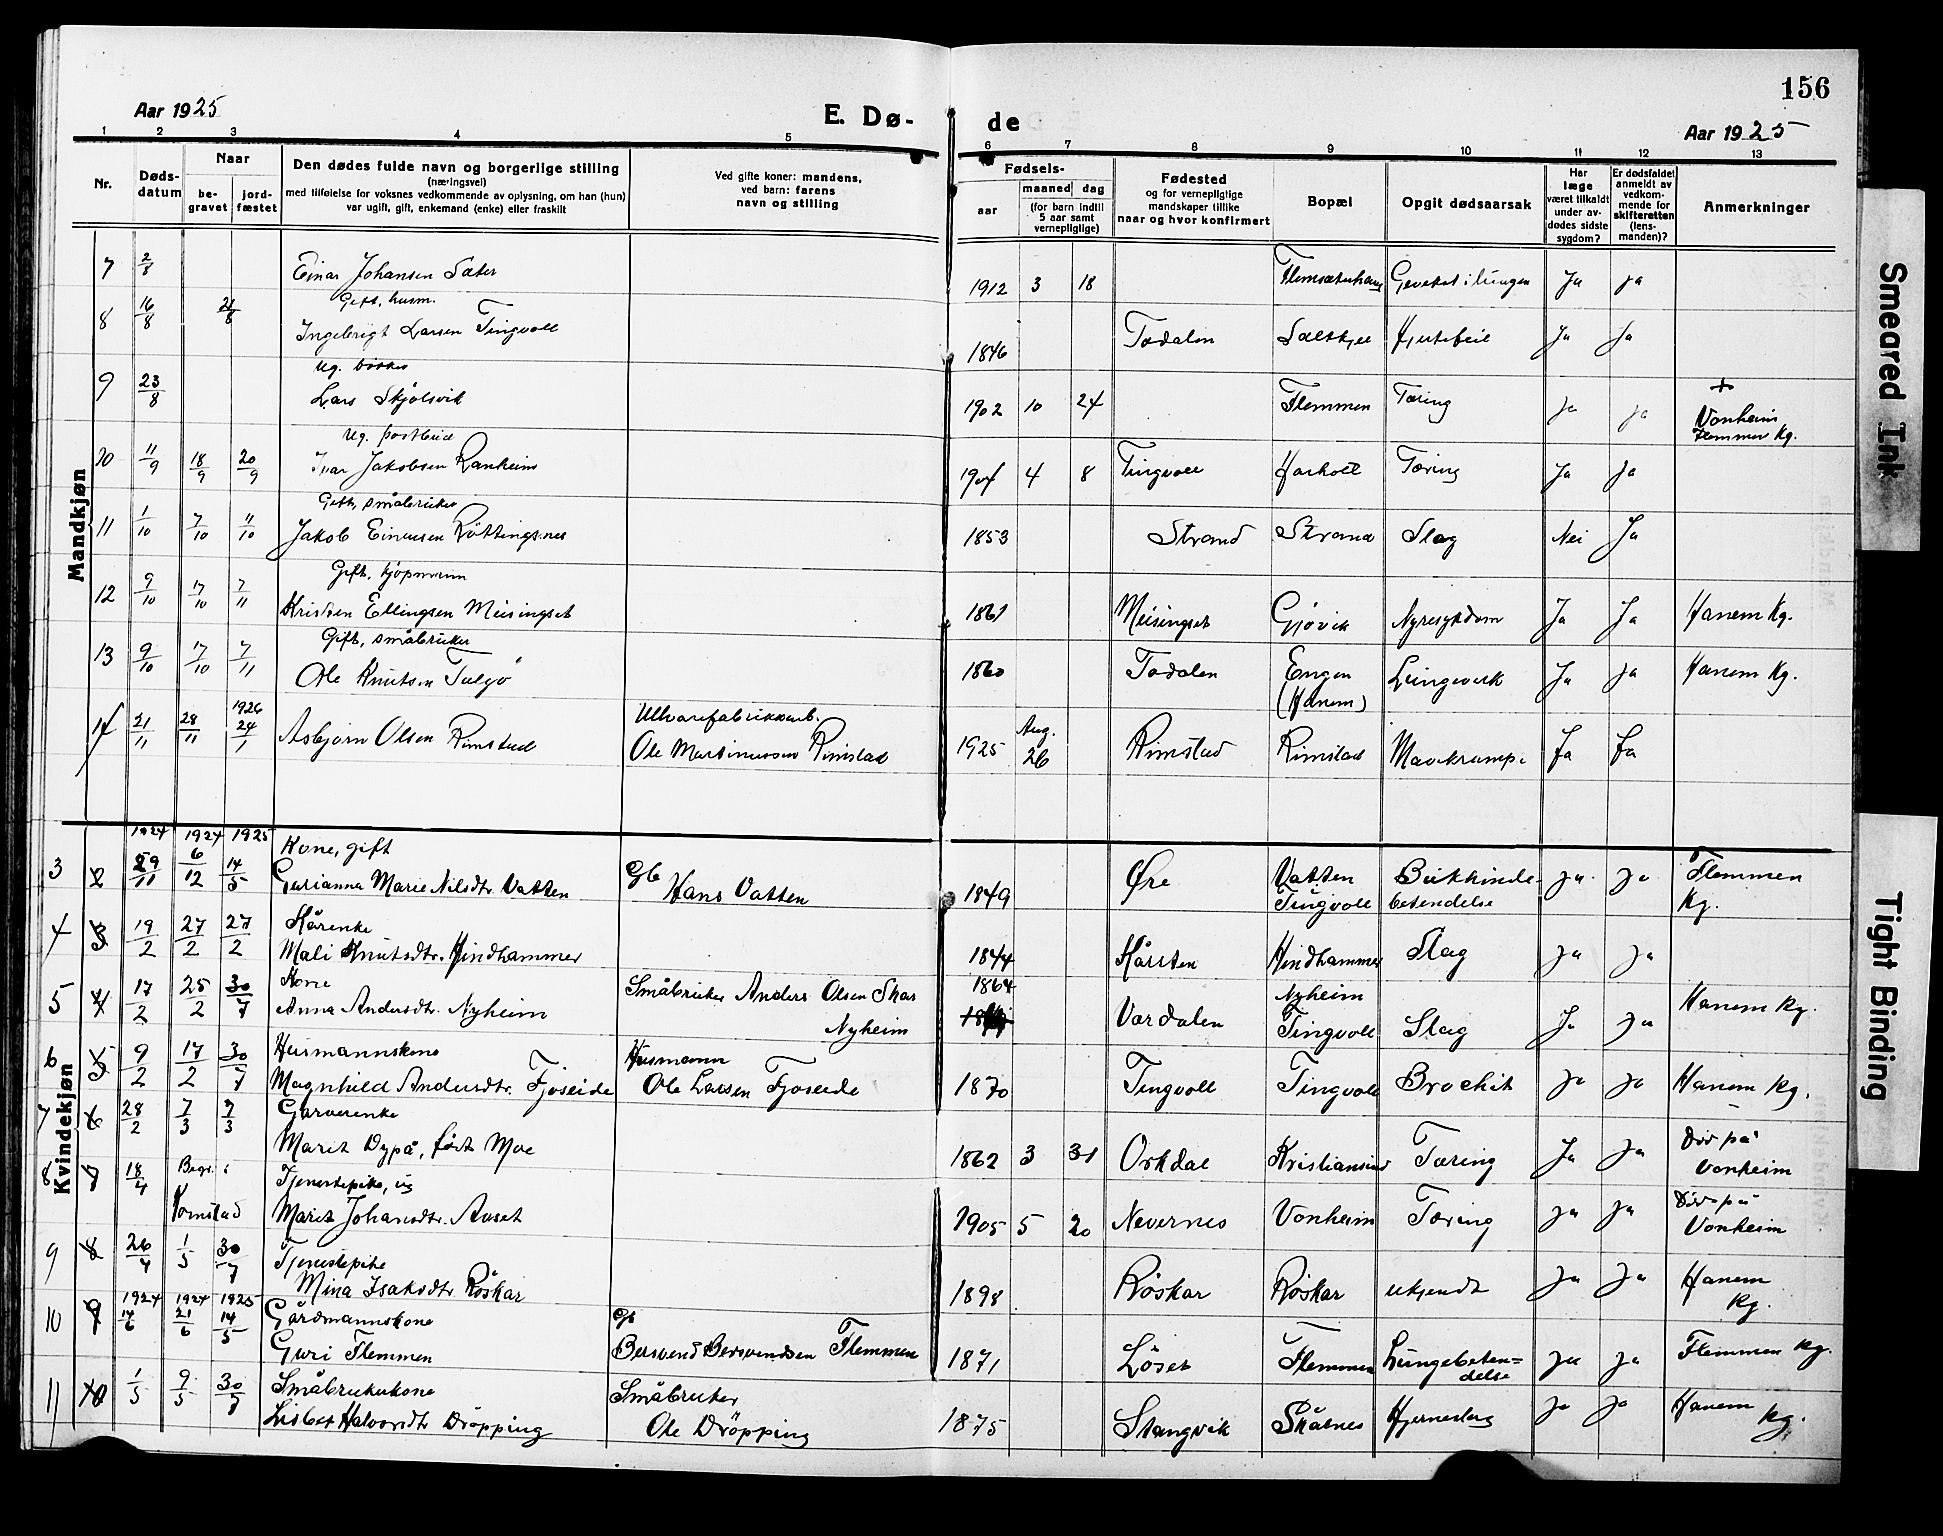 156
Aar 1925
E. Dø-
de
Aar 1925
1 2 3 4 5 6 7 8 9 10 11 12 13
Nr.
Døds-
datum
Naar
be-
gravet
jord-
fæstet
Den dødes fulde navn og borgerlige stilling
(næringsvei)
med tilføielse for voksnes vedkommende av oplysning, om han (hun)
var ugift, gift, enkemand (enke) eller fraskilt
Ved gifte koner: mandens,
ved barn: farens
navn og stilling
Fødsels-
aar
maaned
dag
(for barn indtil
5 aar samt
vernepligtige)
Fødested
og for vernepligtige
mandskaper tillike
naar og hvor konfirmert
Bopæl
Opgit dødsaarsak
Har
læge
været tilkaldt
under av-
dødes sidste
sygdom?
Er dødsfaldet
anmeldt av
vedkom-
mende for
skifteretten
(lens-
manden)?
Anmerkninger
Mandkjøn
7 2/8 Einar Johansen Sæter 1912 3 18 Ja ja
Gift, husm.
8 16/8 21/8 Ingebrigt Larsen Tingvoll 1846 Todalen Hjertefeil Ja Ja
ug.
9 23/8 Lars Skjølsvik 1902 10 24 Flemmen Tæring ja ja + Vonheim
Flemmen Kg.
ug. postbud
10 11/9 18/9 20/9 Ivar Jakobsen Ranheim 1904 4 8 Tingvoll Tæring Ja Ja
Gift, småbruker
11 1/10 7/10 11/10 Jakob Einersen Röttingsnes 1853 Strand Strand Slag Nei Ja
Gift, kjøpmann
12 9/10 17/10 7/11 Kristen Ellingsen Meisingset 1861 Meisingset Gjøvik Nyresykdom Ja Ja Hanem Kg.
Gift, småbruker
13 9/10 17/10 7/11 Ole Knutsen Talgö 1860 Todalen Engen
(Hanem) Ja ja Hanem Kg.
1926
14 21/11 28/11 24/1 Asbjørn Olsen Rimstad Ullvarefabrikkarb.
Ole Martinussen Rimstad 1925 Aug.
26 Rimstad Rimstad Mavekrampe Ja Ja
Kvindekjøn
1924 1924 1925 Kone, gift
3 2 29/11 6/12 14/5 Gurianna Marie Nilsdtr. Vatten Gb
Hans Vatten 1849 Øre Vatten
Tingvoll Bukhinde-
betendelse ja ja Flemmen
Kg.
Kårenke
4 3 19/2 27/2 27/2 Mali Knutsdtr. Hindhammer 1844 Kårsten Hindhammer Slag ja ja
Kone
5 4 17/2 25/2 30/7 Anna Andersdtr. Nyheim Småbruker Anders Olsen Skar
Nyheim 1864 Vardalen Nyheim
Tingvoll Slag Ja ja Hanem Kg.
Husmannskone
6 5 9/2 17/2 30/7 Magnhild Andersdtr. Fjoseide Husmann
Ole Larsen Fjoseide 1870 Tingvoll Tingvoll Brochit ja ja Hanem Kg.
Garverenke
7 6 28/2 7/3 7/3 Marit Dypå, født Moe 1862 3 31 Orkdal Kristiansund Tæring Ja Ja Död på
Vonheim
Tjenestepike, ug
8 7 18/4 Begr. i
Kornstad Marit Johansdtr. Auset 1905 5 20 Nevernes Vonheim Tæring ja ja Död på
Vonheim
Tjenestepike
9 8 26/4 1/5 30/7 Mina Isaksdtr. Röskar 1898 Röskar Röskar ukjendt ja ja Hanem
Kg.
1924 1924 1925 Gårdmannskone
10 9 14/6 21/6 14/5 Guri Flemmen Gb
Bersvend Bersvendsen Flemmen 1871 Löset Flemmen Lungebeten=
delse ja ja Flemmen Kg.
Småbrukerkone
11 10 1/5 9/5 30/7 Lisbet Halvordtr Dröpping Småbruker
Ole Dröpping 1875 Stangvik Skålnes Hjerneslag ja ja Hanem
Kg.
Smeared Ink
Tight Binding